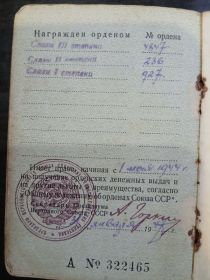 Награжден орденом № ордена
Славы III степени 4847
Славы II степени 236
Славы I степени 927
Имеет право, начиная с 1 июля 1944 г.
на получение орденских денежных выдач и
на другие льготы и преимущества, согласно
"Общему положению об орденах Союза ССР".
Секретарь Президиума
Верховного Совета СССР А. Горкин
января 19
А № 322465